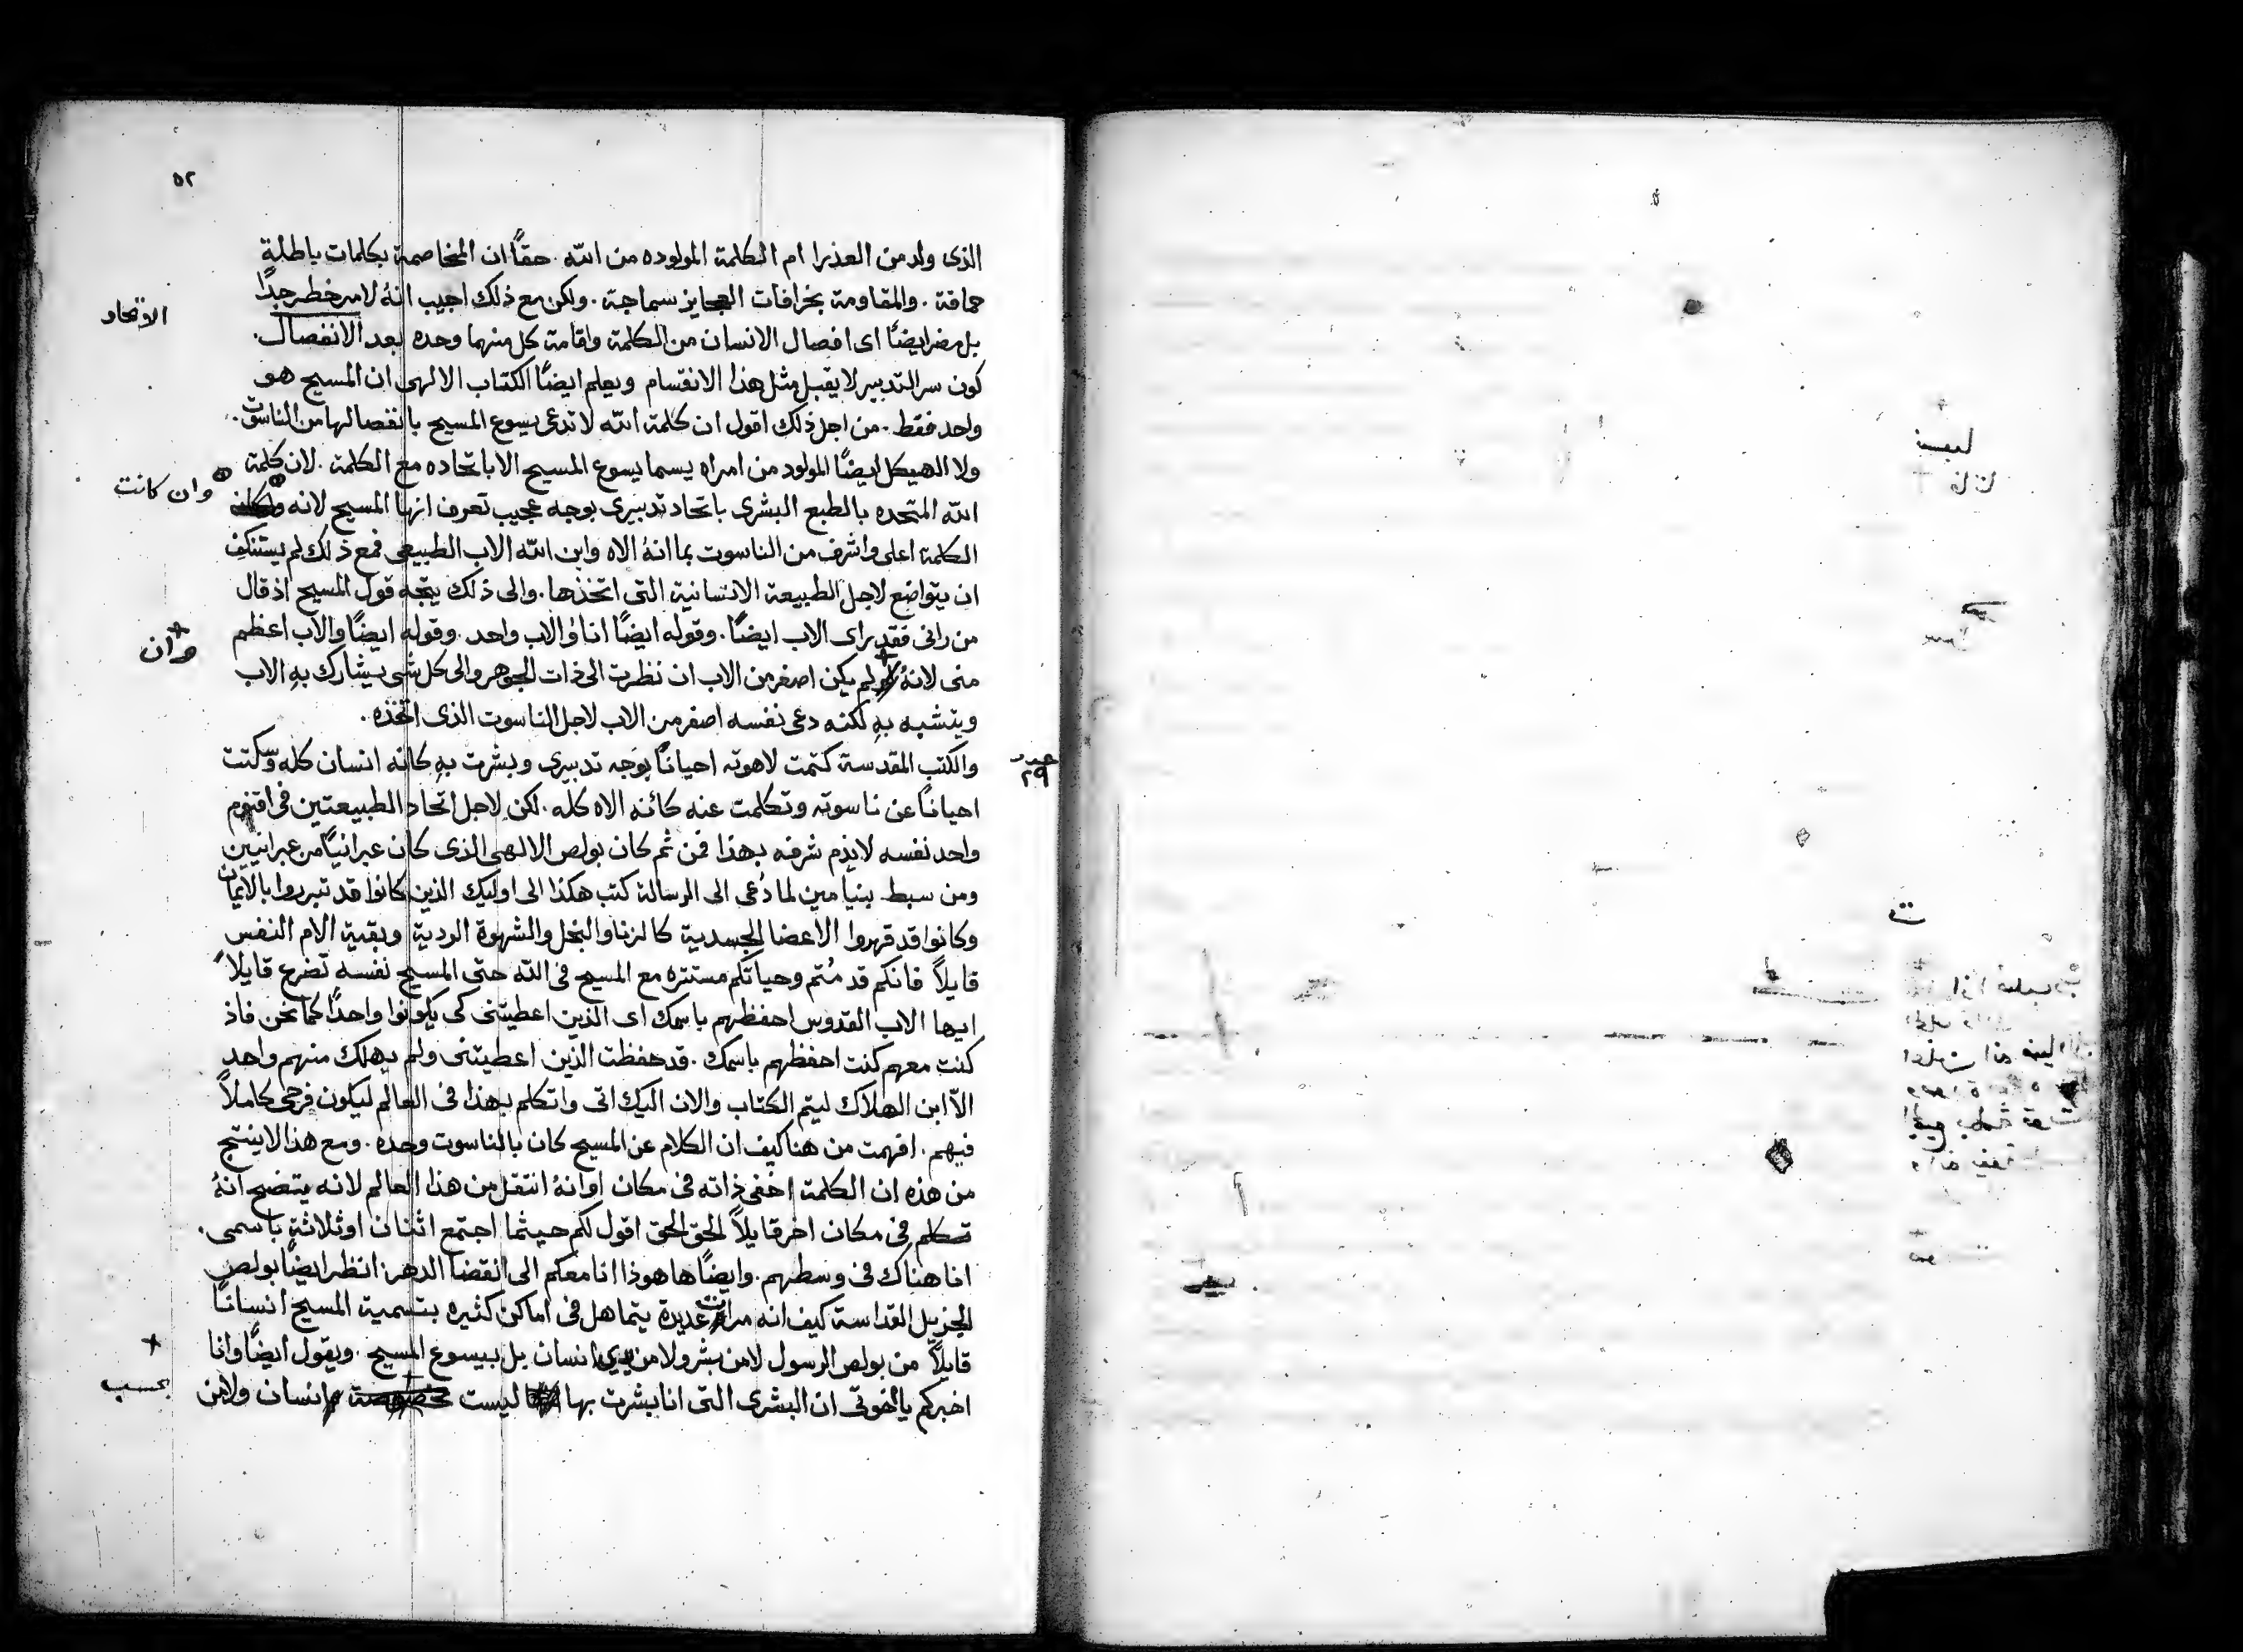 ٥٢
الذى ولد من العذرا ام الكلمة المولوده من الله. حقًا ان المخاصمة بكلمات باطلة
حماقة. والمقاومة بخرافات العجايز سماجة. ولكن مع ذلك اجيب انهُ لامر خطر جدًا
بل مضر ايضًا اى افصال الانسان من الكلمة واقامة كل منهما وحده بعد الانفصال.
الاتحاد
كون سر التدبير لا يقبل مثل هذا الانقسام ويعلم ايضًا الكتاب الالهى ان المسيح هو
واحد فقط. من اجل ذلك اقول ان كلمة الله لا تدعى يسوع المسيح بانفصالها من الناسوت.
ولا الهيكل ايضًا المولود من امراه يسما يسوع المسيح الا باتحاده مع الكلمة. لان كلمة
الله المتحده بالطبع البشرى باتحاد تدبيرى بوجه عجيب تعرف انها المسيح لانه
وان كانت
الكلمة اعلى واشرف من الناسوت بما انهُ الاه وابن الله الاب الطبيعى فمع ذلك لم يستنكف
ان يتواضع لاجل الطبيعة الانسانية التى اتخذها. والى ذلك يتجه قول المسيح اذ قال
من رانى فقد راى الاب ايضًا. وقوله ايضًا انا والاب واحد. وقوله ايضًا والاب اعظم
وان
منى لانهُ لم يكن اصغر من الاب ان نظرت الى ذات الجوهر والى كل شى يشارك بهِ الاب
ويتشبه بهِ لكنه دعى نفسه اصغر من الاب لاجل الناسوت الذى اتخذه.
عدد ٢٩
والكتب المقدسة كتمت لاهوته احيانًا بوجه تدبيرى وبشرت بهِ كانه انسان كله وسكتت
احيانًا عن ناسوته وتكلمت عنه كائنه الاه كله. لكن لاجل اتحاد الطبيعتين فى اقنوم
واحد نفسه لا يذم شرفه بهذا فمن ثم كان بولص الالهى الذى كان عبرانيًا من عبرانيين
ومن سبط بنيامين لما دُعى الى الرسالة كتب هكذا الى اوليك الذين كانوا قد تبرروا بالايمان
وكانوا قد قهروا الاعضا الجسدية كالزنا والبخل والشهوة الردية وبقية الام النفس
قايلاً فانكم قد مُتم وحياتكم مستتره مع المسيح فى الله حتى المسيح نفسه تضرع قايلاً
ايها الاب القدوس احفظهم باسمك اى الذين اعطيتنى كى يكونوا واحدًا كما نحن فاذ
كنت معهم كنت احفظهم باسمك. قد حفظت الذين اعطيتنى ولم يهلك منهم واحد
الاّ ابن الهلاك ليتم الكتاب والان اليك اتى واتكلم بهذا فى العالم ليكون فرحى كاملاً
فيهم. افهمت من هنا كيف ان الكلام عن المسيح كان بالناسوت وحده. ومع هذا لا ينتج
من هذه ان الكلمة اخفى ذاته فى مكان او انهُ انتقل من هذا العالم لانه يتضح انهُ
تكلم فى مكان اخر قايلاً الحق الحق اقول لكم حيثما اجتمع اثنان او ثلاثة باسمى.
انا هناك فى وسطهم. وايضًا ها هوذا انا معكم الى انقضا الدهر. انظر ايضًا بولص
الجزيل القداسة كيف انه مرات عديدة يتماهل فى اماكن كثيره بتسمية المسيح انسانًا
قايلاً من بولص الرسول لا من بشر ولا من يدى انسان بل بيسوع المسيح. ويقول ايضًا وانا
اخبركم يا اخوتى ان البشرى التى انا بشرت بها ليست انسان ولا من
بحسب